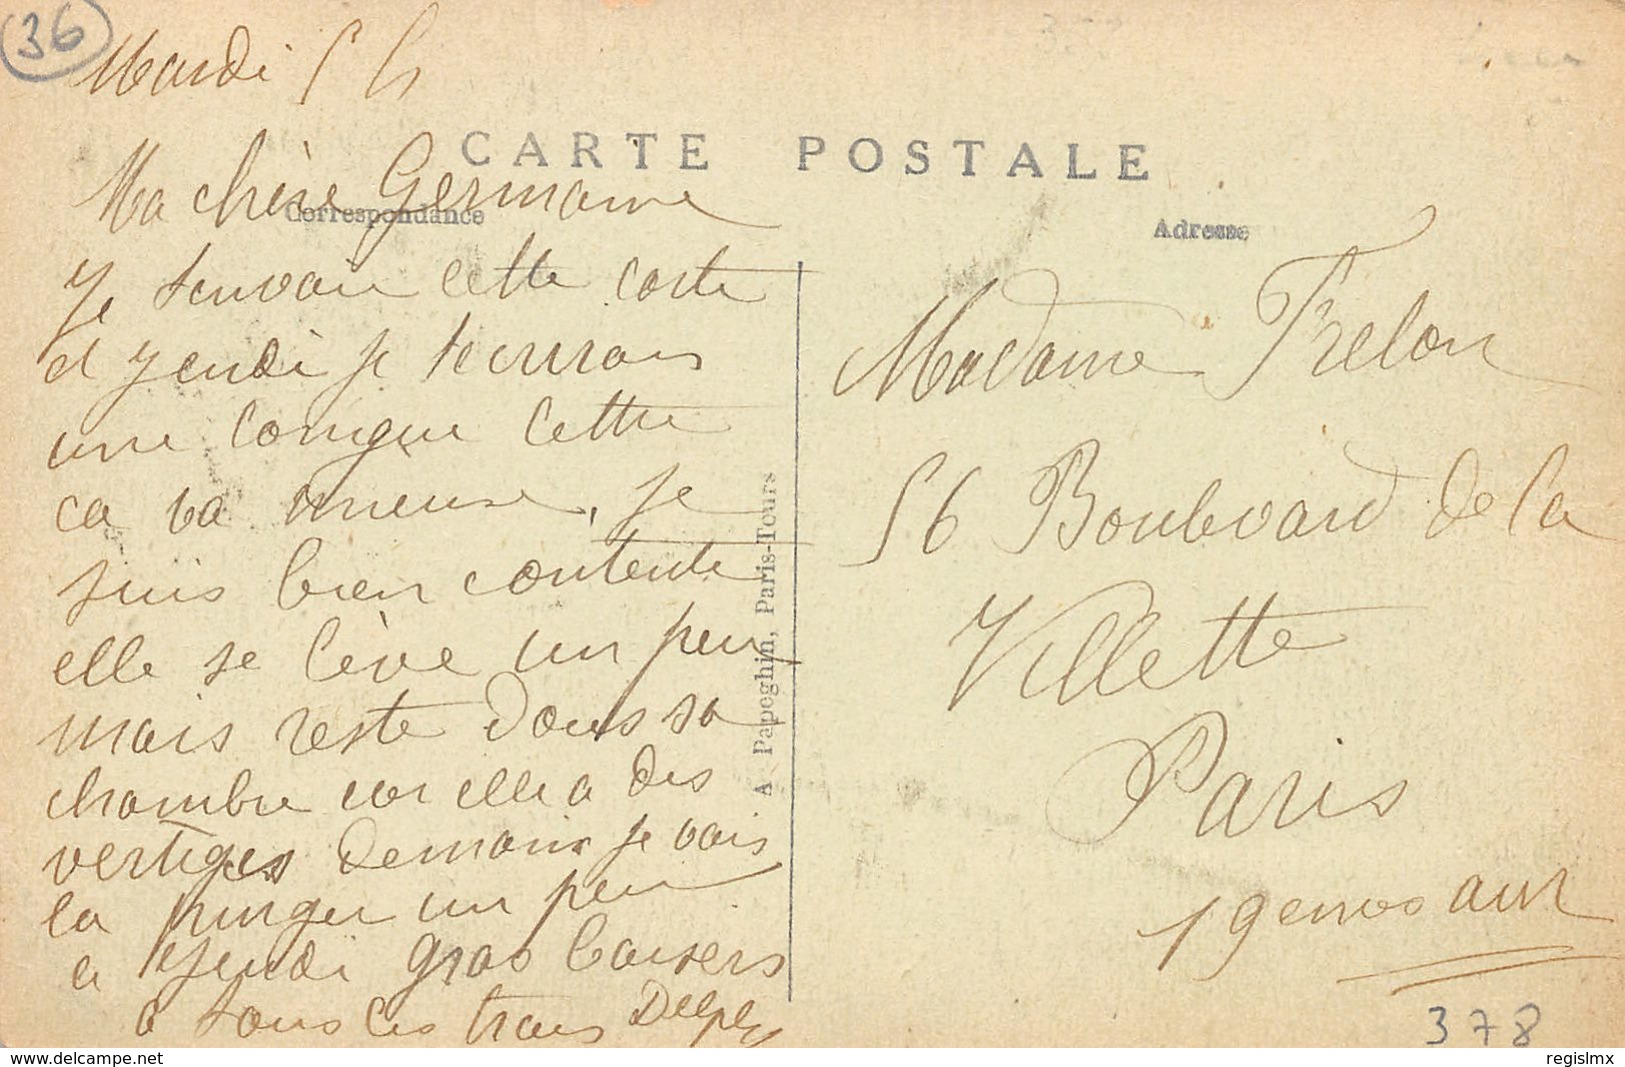 36
Mardi 5 h
CARTE POSTALE
Ma chère Germaine
Correspondance
Je t'envoie cette carte
et jeudi je t'ecrirais
une longue lettre
ca va mieux, je
suis bien contente
elle se lève un peu
mais reste dans sa
chambre car elle a des
vertiges demain je vais
la purger un peu
a jeudi gros baisers
a tous les trois
A Papeghin, Paris-Tours
Adresse
Madame Frelon
56 Boulevard de la
Villette
Paris
19
378
www.delcampe.net
regislmx